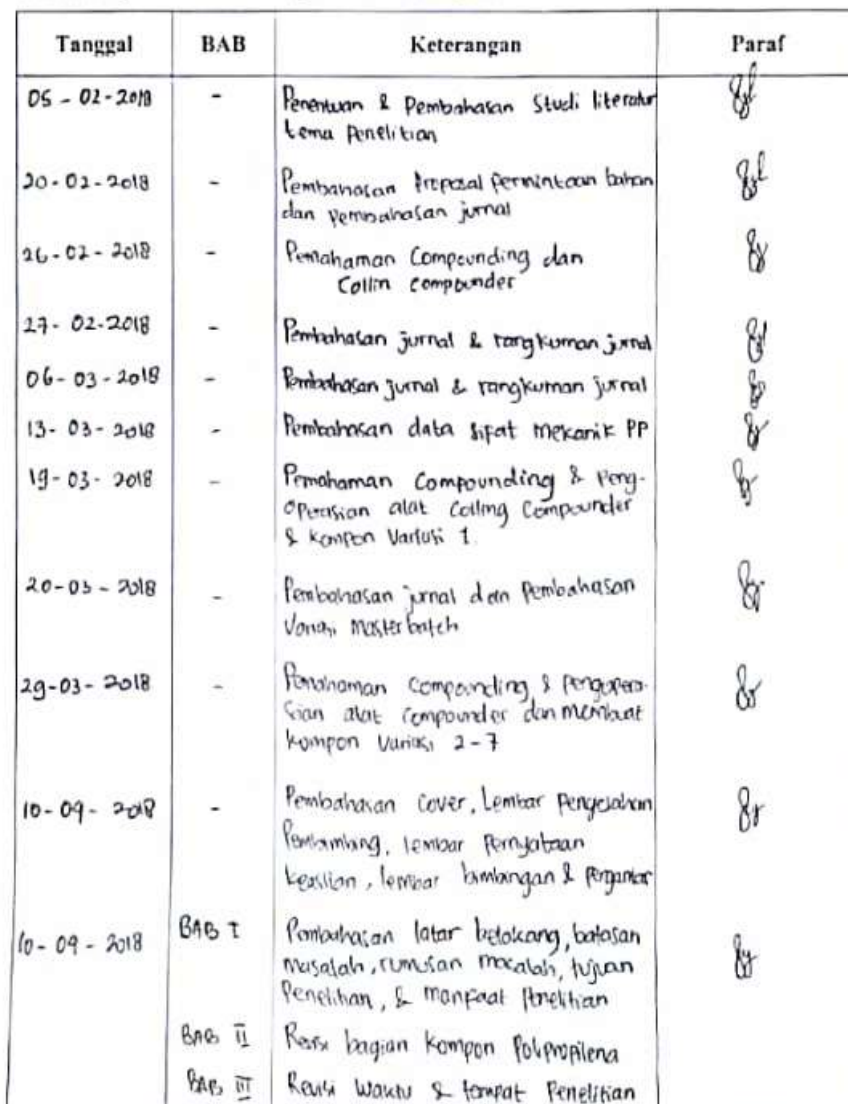 Tanggal BAB Keterangan Paraf
05 - 02 - 2018 - Penentuan & Pembahasan Studi literatur
tema Penelitian
20 - 02 - 2018 - Pembahasan Proposal Permintaan bahan
dan Pembahasan jurnal
26 - 02 - 2018 - Pemahaman Compounding dan
Collin Compounder
27 - 02 - 2018 - Pembahasan jurnal & rangkuman jurnal
06 - 03 - 2018 - Pembahasan jurnal & rangkuman jurnal
13 - 03 - 2018 - Pembahasan data sifat mekanik PP
19 - 03 - 2018 - Pemahaman Compounding & Peng-
operasian alat Colling Compounder
& kompon Variasi 1.
20 - 03 - 2018 - Pembahasan jurnal dan Pembahasan
Variasi Masterbatch
29 - 03 - 2018 - Pemahaman Compounding & Pengopera-
sian alat Compounder dan membuat
kompon Variasi 2 - 7
10 - 09 - 2018 - Pembahasan Cover, Lembar Pengesahan
Pembimbing, lembar Pernyataan
keaslian, lembar bimbingan & Pengantar
10 - 09 - 2018 BAB I Pembahasan latar belakang, batasan
masalah, rumusan masalah, tujuan
Penelitian, & manfaat Penelitian
BAB II Revisi bagian Kompon Polipropilena
BAB III Revisi Waktu & tempat Penelitian